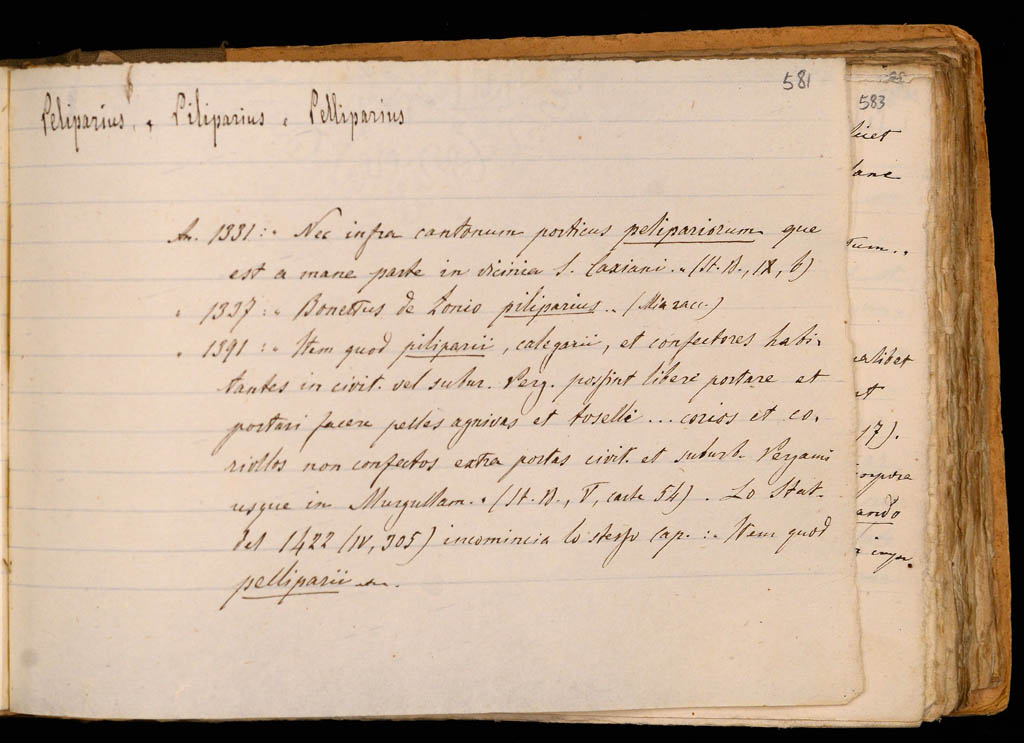 581
Peliparius, " Piliparius " Pelliparius
An. 1331: " Nec infra cantonum porticus pelipariorum que
est a mane parte in vicinia S. Caxiani. " (St. B., IX, 6)
" 1337: " Bonettus de Zonio piliparius. "
" 1391: " Item quod piliparii, calegarii, et confectores habi-
tantes in civit. vel subur. Perg. possint libere portare et
portari facere pelles agnivas et toselli ... corios et co-
riollos non confectos extra portas civit. et suburb. Pergami
usque in Murgullam. " (St. B., V, carte 54). Lo Stat.
del 1422 (IV, 305) incomincia lo stesso Cap.: " Item quod
pelliparii
583
licet
lane
rum. "
17).